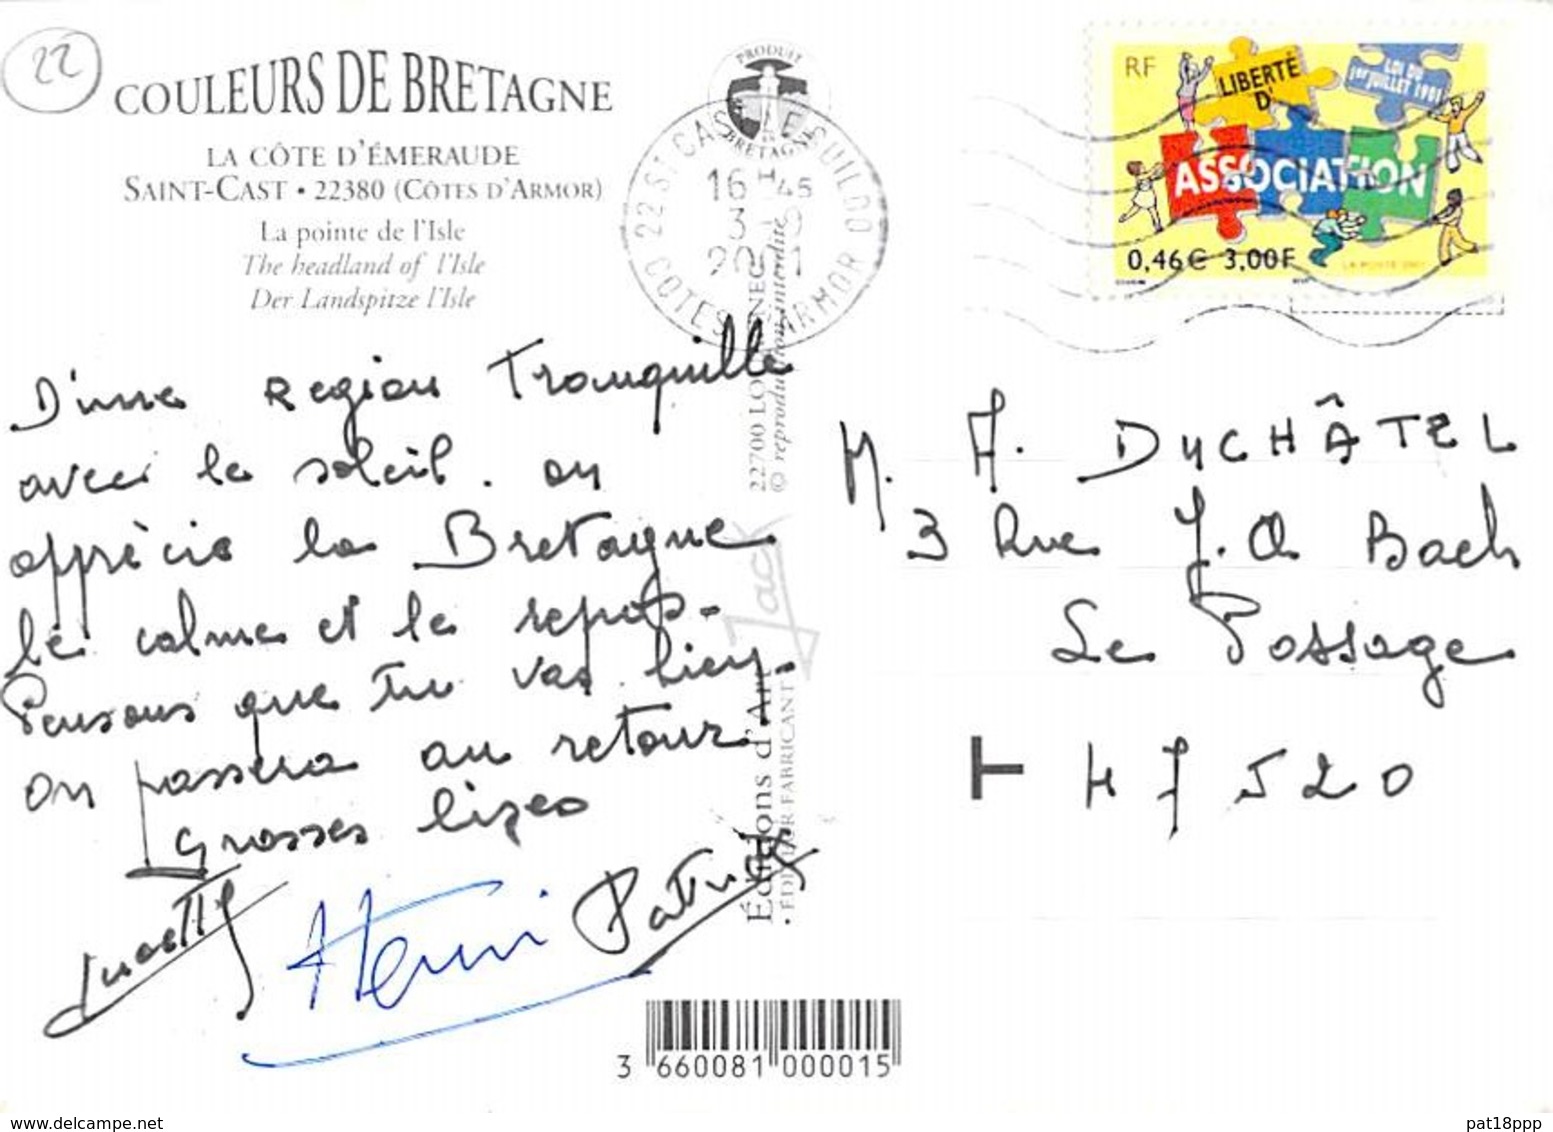 22
COULEURS DE BRETAGNE
LA CÔTE D'ÉMERAUDE
SAINT-CAST • 22380 (CÔTES D'ARMOR)
La pointe de l'Isle
The headland of l'Isle
Der Landspitze l'Isle
PRODUIT
EN
BRETAGNE
22 ST CAST LE GUILDO
16 H 45
3 - 9
2001
COTES D'ARMOR
RF
LIBERTÉ
D'
LOI DU
1er JUILLET 1901
ASSOCIATION
0,46€ 3,00F
LA POSTE 2001
D'une Region Tranquille
avec le soleil. on
apprècie la Bretagne
le calme et le repos -
Pensons que tu vas bien.
on passera au retour
Grosses bizes
Henri
Patrick
Éditions d'Art Jack
• ÉDITEUR FABRICANT
22700
© reproduction interdite
M. A. DUCHÂTEL
3 Rue J. S Bach
Le Passage
47520
3 660081 000015
pat18ppp